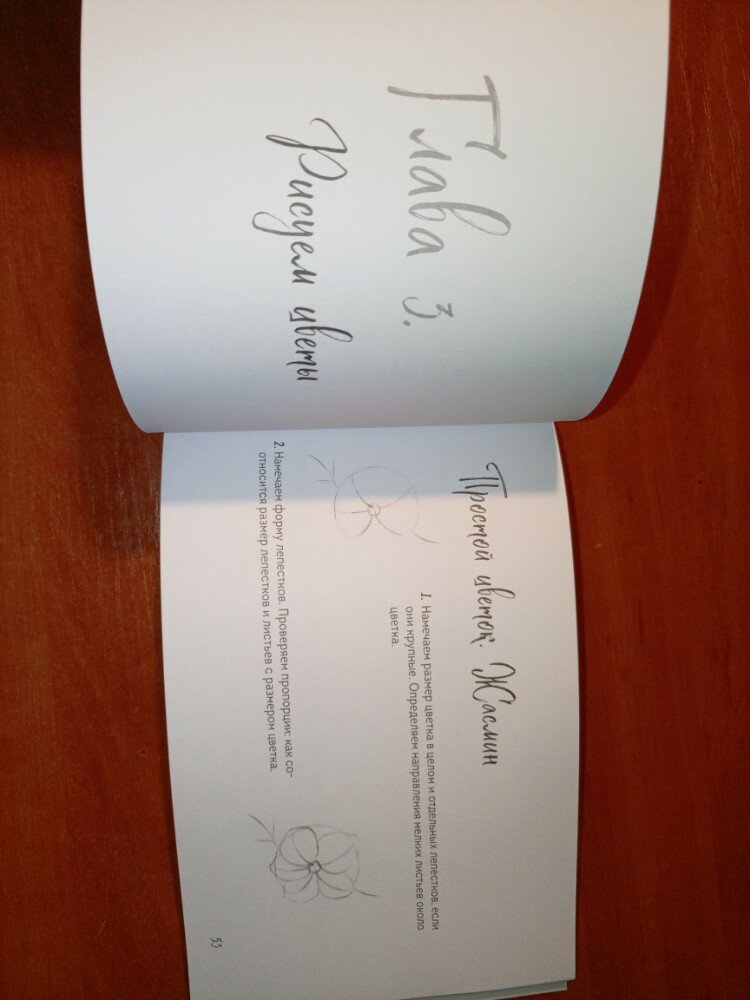 Глава 3.
Рисуем цветы
Простой цветок. Жасмин
1. Намечаем размер цветка в целом и отдельных лепестков, если
они крупные. Определяем направления мелких листьев около
цветка.
2. Намечаем форму лепестков. Проверяем пропорции: как со-
относится размер лепестков и листьев с размером цветка.
53